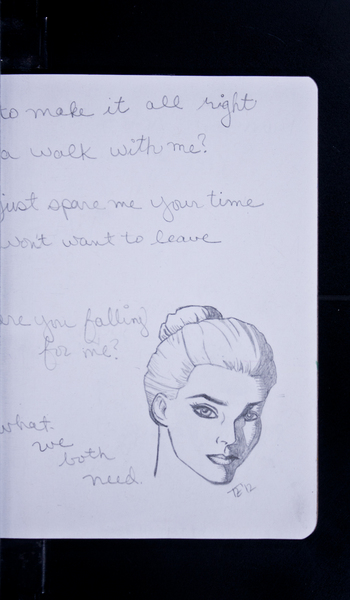 to make it all right
a walk with me?
just spare me your time
won't want to leave
are you falling
for me?
what
we
both
need.
TE'12